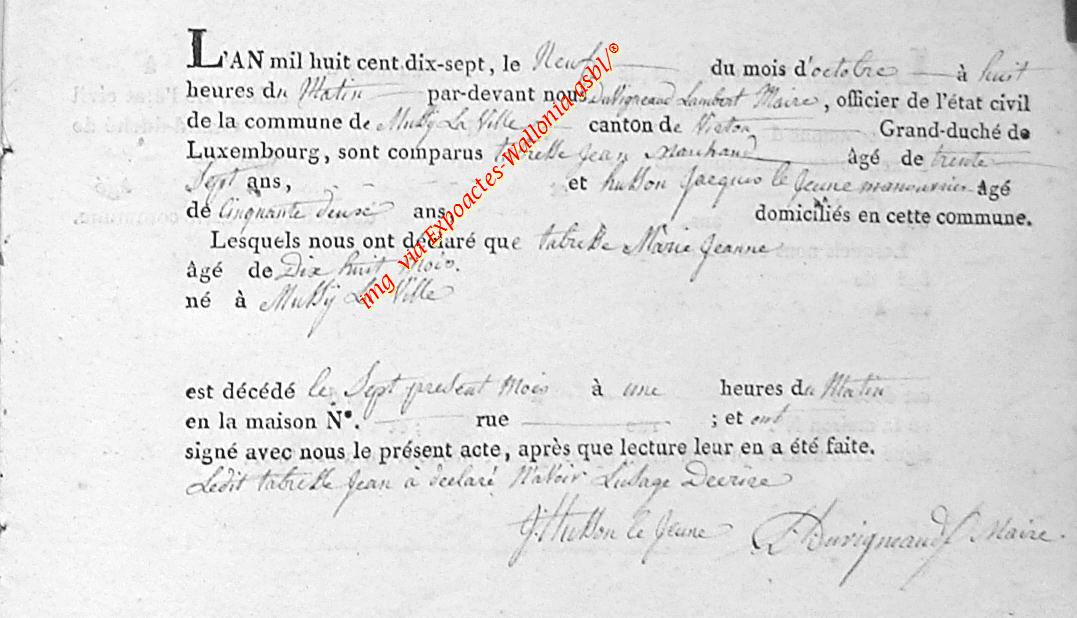 L'AN mil huit cent dix-sept, le Neuf du mois d'octobre à huit
heures du Matin par-devant nous Duvigneaud Lambert Maire, officier de l'état civil
de la commune de Mussy La Ville canton de Virton Grand-duché de
Luxembourg, sont comparus tabresse Jean Marchand âgé de trente
Sept ans, et husson Jacques le Jeune manouvrier âgé
de Cinquante deuse ans domiciliés en cette commune.
Lesquels nous ont déclaré que tabresse Marie Jeanne
âgé de Dix huit Mois.
né à Mussÿ La Ville
est décédé le Sept present Mois à une heures du Matin
en la maison N°. rue ; et ont
signé avec nous le présent acte, après que lecture leur en a été faite.
Ledit tabresse Jean à declaré N'avoir L'usage Decrire
J. Husson le Jeune L. Duvigneaud Maire.
img via Expoactes-Wallonia-asbl/®